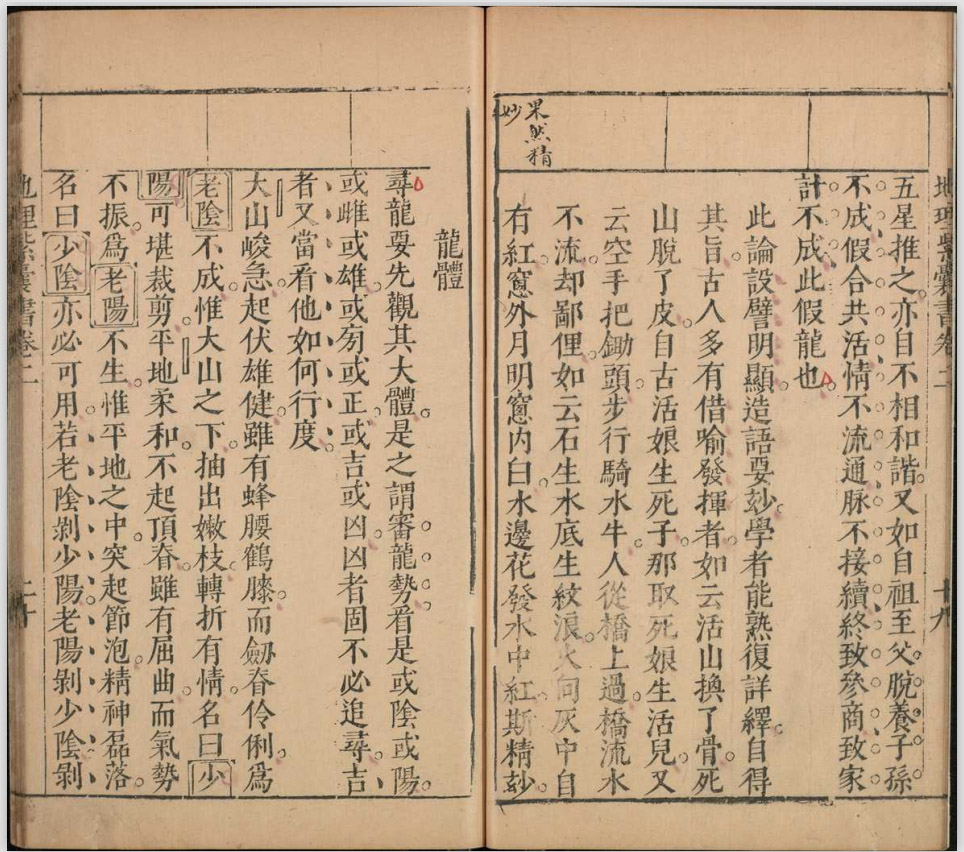 果然精
妙
五星推之亦自不相和諧又如自祖至父脫養子孫
不成假合共活情不流通脉不接續終致參商致家
計不成此假龍也
此論設譬明顯造語要玅學者能熟復詳繹自得
其旨古人多有借喻發揮者如云活山換了骨死
山脫了皮自古活娘生死子那取死娘生活兒又
云空手把鋤頭步行騎水牛人從橋上過橋流水
不流却鄙俚如云石生水底生紋浪火向灰中自
有紅窻外月明窻内白水邊花發水中紅斯精玅
地理紫囊書卷二
十九
龍體
尋龍要先觀其大體是之謂審龍勢看是或陰或陽
或雌或雄或旁或正或吉或凶凶者固不必追尋吉
者又當看他如何行度
大山峻急起伏雄健雖有蜂腰鶴膝而劒脊伶俐爲
老陰不成惟大山之下抽出嫩枝轉折有情名曰少
陽可堪裁剪平地柔和不起頂脊雖有屈曲而氣勢
不振爲老陽不生惟平地之中突起節泡精神磊落
名曰少陰亦必可用若老陰剝少陽老陽剝少陰剝
地理紫囊書卷二
二十